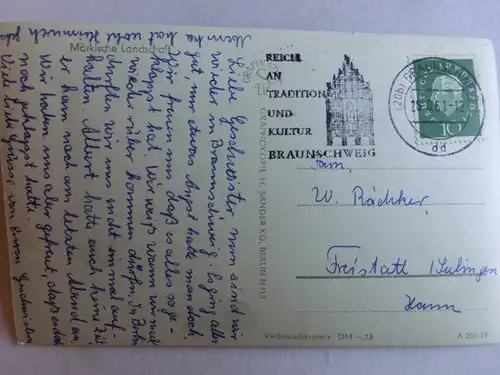 Märkische Landschaft
Liebe Geschwister nun sind wir
wieder in Braunschweig. Es ging alles
gut, nur etwas Angst hatte man doch.
Wir freuen uns daß es alles so ge-
klappt hat. Wir weiß wann wir mal
wieder rüber kommen dürfen. In Berlin
durften wir uns nicht einmal auf-
halten Albert hatte auch keine Zeit
er kam noch am letzten Abend an.
Wir haben uns aber gefreut, daß es doch
noch geklappt hatte.
Viele liebe Grüsse von euren Geschwistern
GRAPHOKOPIE H. SANDER KG, BERLIN N 113
REICH
AN
TRADITION
UND
KULTUR
BRAUNSCHWEIG
(20b)
61-17
dd
DEUTSCHE BUNDESPOST
10
Fam.
W. Rädcker
Freistatt /Sulingen
Hann
Verbraucherpreis DM -.15